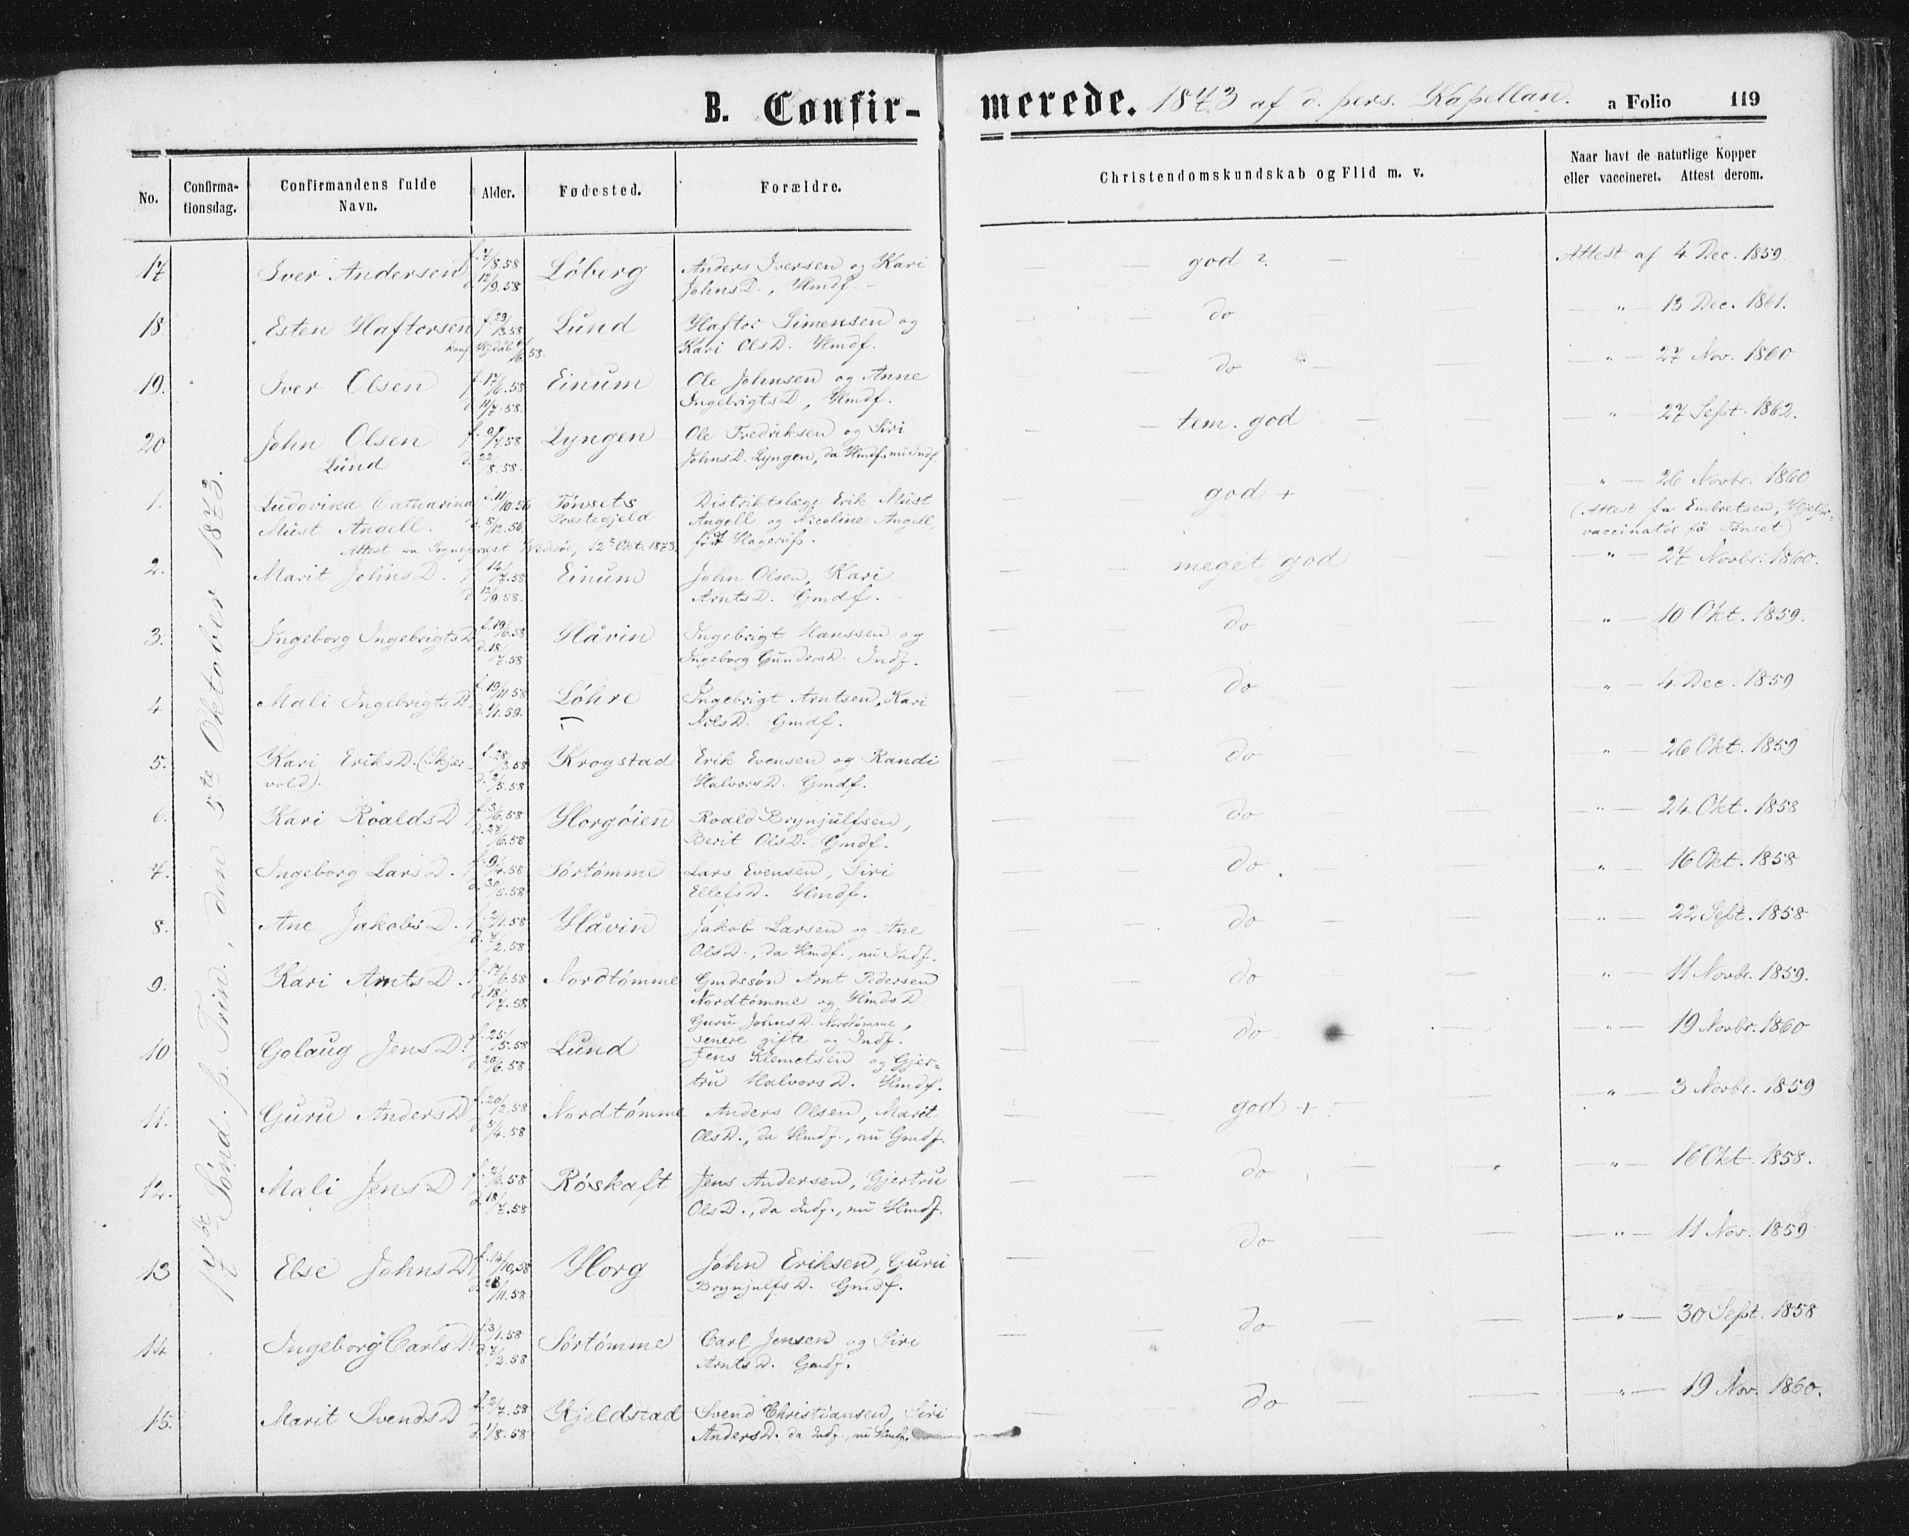 B. Confirmerede. 1873 af d. pers. Kapellan. a Folio 119
No. Confirmationsdag. Confirmandens fulde Navn. Alder. Fødested. Forældre. Christendomskundskab og Flid m. v. Naar havt de naturlige Kopper eller vaccineret. Attest derom.
17de Sønd. p. Trin., den 5te Oktober 1873.
17 Iver Andersen f. 7/8.58 d. 12/9.58 Løberg Anders Iversen og Kari — — god 2. — Attest af 4 Dec. 1859.
JohnsD., Hmdf. —
18. Esten Haftorsen f. 29/3.58 Lund Haftor Simensen og — do — " 13 Dec. 1861.
Kari OlsD. Hmdf.
19. Iver Olsen f. 17/6.58 d. 11/7.58. Einum Ole Johnsen og Anne — do — — " — 27 Nov. 1860
IngebrigtsD, Hmdf.
20 John Olsen Lund d. 22/8.58. Lyngen Ole Fredriksen og Siri — — tem. god — — " 27 Sept. 1862.
JohnsD. Lyngen, da Hmdf. nu Indf.
1. Ludovika Catharina f. 11/10.56 Tønsets Distriktslæge Erik Must — god + — " — 26 Novbr. 1860
Must Angell. d. 5/12.56 Præstegjeld Angell og Nicoline Angell, (Attest fra Embretsen, Hjelpe-
født Hagerup. vaccinatør på Tønset)
Attest fra Sognepræst 12te Okt. 1873.
2. Marit JohnsD. f. 14/7.58 d. 12/9.58. Einum John Olsen, Kari — meget god — " — 27 Novbr. 1860.
ArntsD. Gmdf. —
3. Ingeborg IngebrigtsD f. 19/6.58 d. 18/7.58 Håvin Ingebrigt Hanssen og — do — — " — 10 Okt. 1859.
Ingeborg GundersD. Indf.
4 Mali IngebrigtsD. f. 19/11.58 d. 1/1.59. Løhre Ingebrigt Arntsen, Kari — — do — — " — 4 Dec. 1859
NilsD. Gmdf.
5. Kari EriksD. (Skjer- f. 28/3.58 Krogstad Erik Evensen og Randi — do — " — 26 Okt. 1859
vold). d. 2/5.58 HalvorsD. Gmdf.
6. Kari RoaldsD f. 3/6.58 d. 27/6.58 Horgøien Roald Brynjulfsen, — — do — " — 24 Okt. 1858
Berit OlsD. Gmdf.
7. Ingeborg LarsD. f. 9/4.58 d. 30/5.58 Sørtømme Lars Evensen, Siri — — do. — " — 16 Okt. 1858
EllefsD. Hmdf.
8. Ane JakobsD. f. 2/1.58 d. 7/2.58 Håvin Jakob Larsen og Ane — do — — " — 22 Sept. 1858
OlsD., da Hmdf., nu Indf.
9. Kari ArntsD. f. 17/6.58 d. 18/7.58 Nordtømme Gmdssøn Arnt Pedersen — do — — " — 11 Novbr. 1859.
Nordtømme og HmdsD
Guru JohnsD. Nordtømme,
senere gifte og Indf.
10 Golaug JensD. f. 25/5.58 d. 20/6.58 Lund Jens Klemetsen og Gjer- — do — — " — 19 Novbr. 1860
tru HalvorsD. Hmdf.
11. Guru AndersD f. 20/2.58 d. 5/4.58 Nordtømme Anders Olsen, Marit — god + — " — 3 Novbr. 1859
OlsD., da Hmdf., nu Gmdf.
12. Mali JensD f. 2/6.58 d. 18/7.58 Røskaft Jens Andersen, Gjertru — do — — " — 16 Okt. 1858.
OlsD., da Indf., nu Hmdf.
13 Else JohnsD f. 14/10.58 d. 28/11.58 Horg John Eriksen, Guru — do — — " — 11 Nov. 1859
BrynjulfsD. Gmdf.
14 Ingeborg CarlsD f. 3/1.58 d. 7/2.58 Sørtømme Carl Jensen og Siri — — do — — " — 30 Sept. 1858
ArntsD. Gmdf.
15. Marit SvendsD f. 2/7.58 d. 1/8.58 Kjeldstad Svend Christiansen, Siri — do — — " — 19 Nov. 1860.
AndersD. da Indf., nu Hmdf.